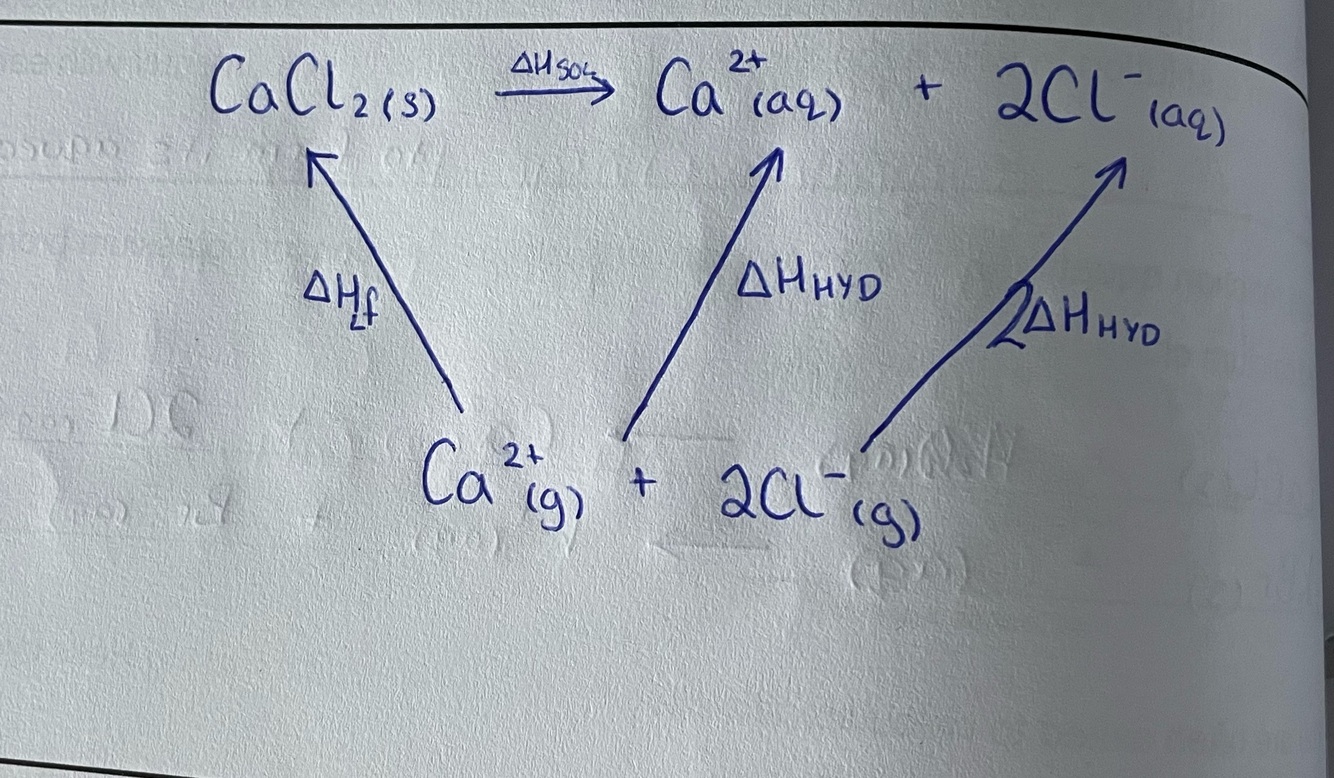 CaCl₂(s) ΔHSOL → Ca²⁺(aq) + 2Cl⁻(aq)
ΔHLf ΔHHYD 2ΔHHYD
Ca²⁺(g) + 2Cl⁻(g)